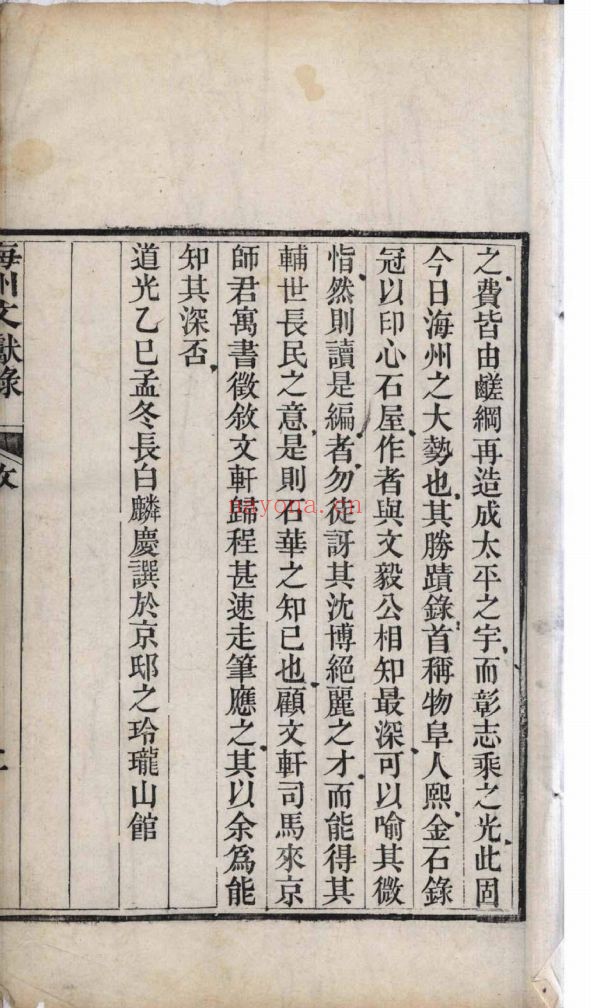 之費皆由鹺綱再造成太平之宇而彰志乘之光此固
今日海州之大勢也其勝蹟錄首稱物阜人熙金石錄
冠以印心石屋作者與文毅公相知最深可以喻其微
恉然則讀是編者勿徒訝其沈博絕麗之才而能得其
輔世長民之意是則石華之知已也顧文軒司馬來京
師君寓書徵敘文軒歸程甚速走筆應之其以余爲能
知其深否
道光乙巳孟冬長白麟慶譔於京邸之玲瓏山館
海州文獻錄
nayona.cn